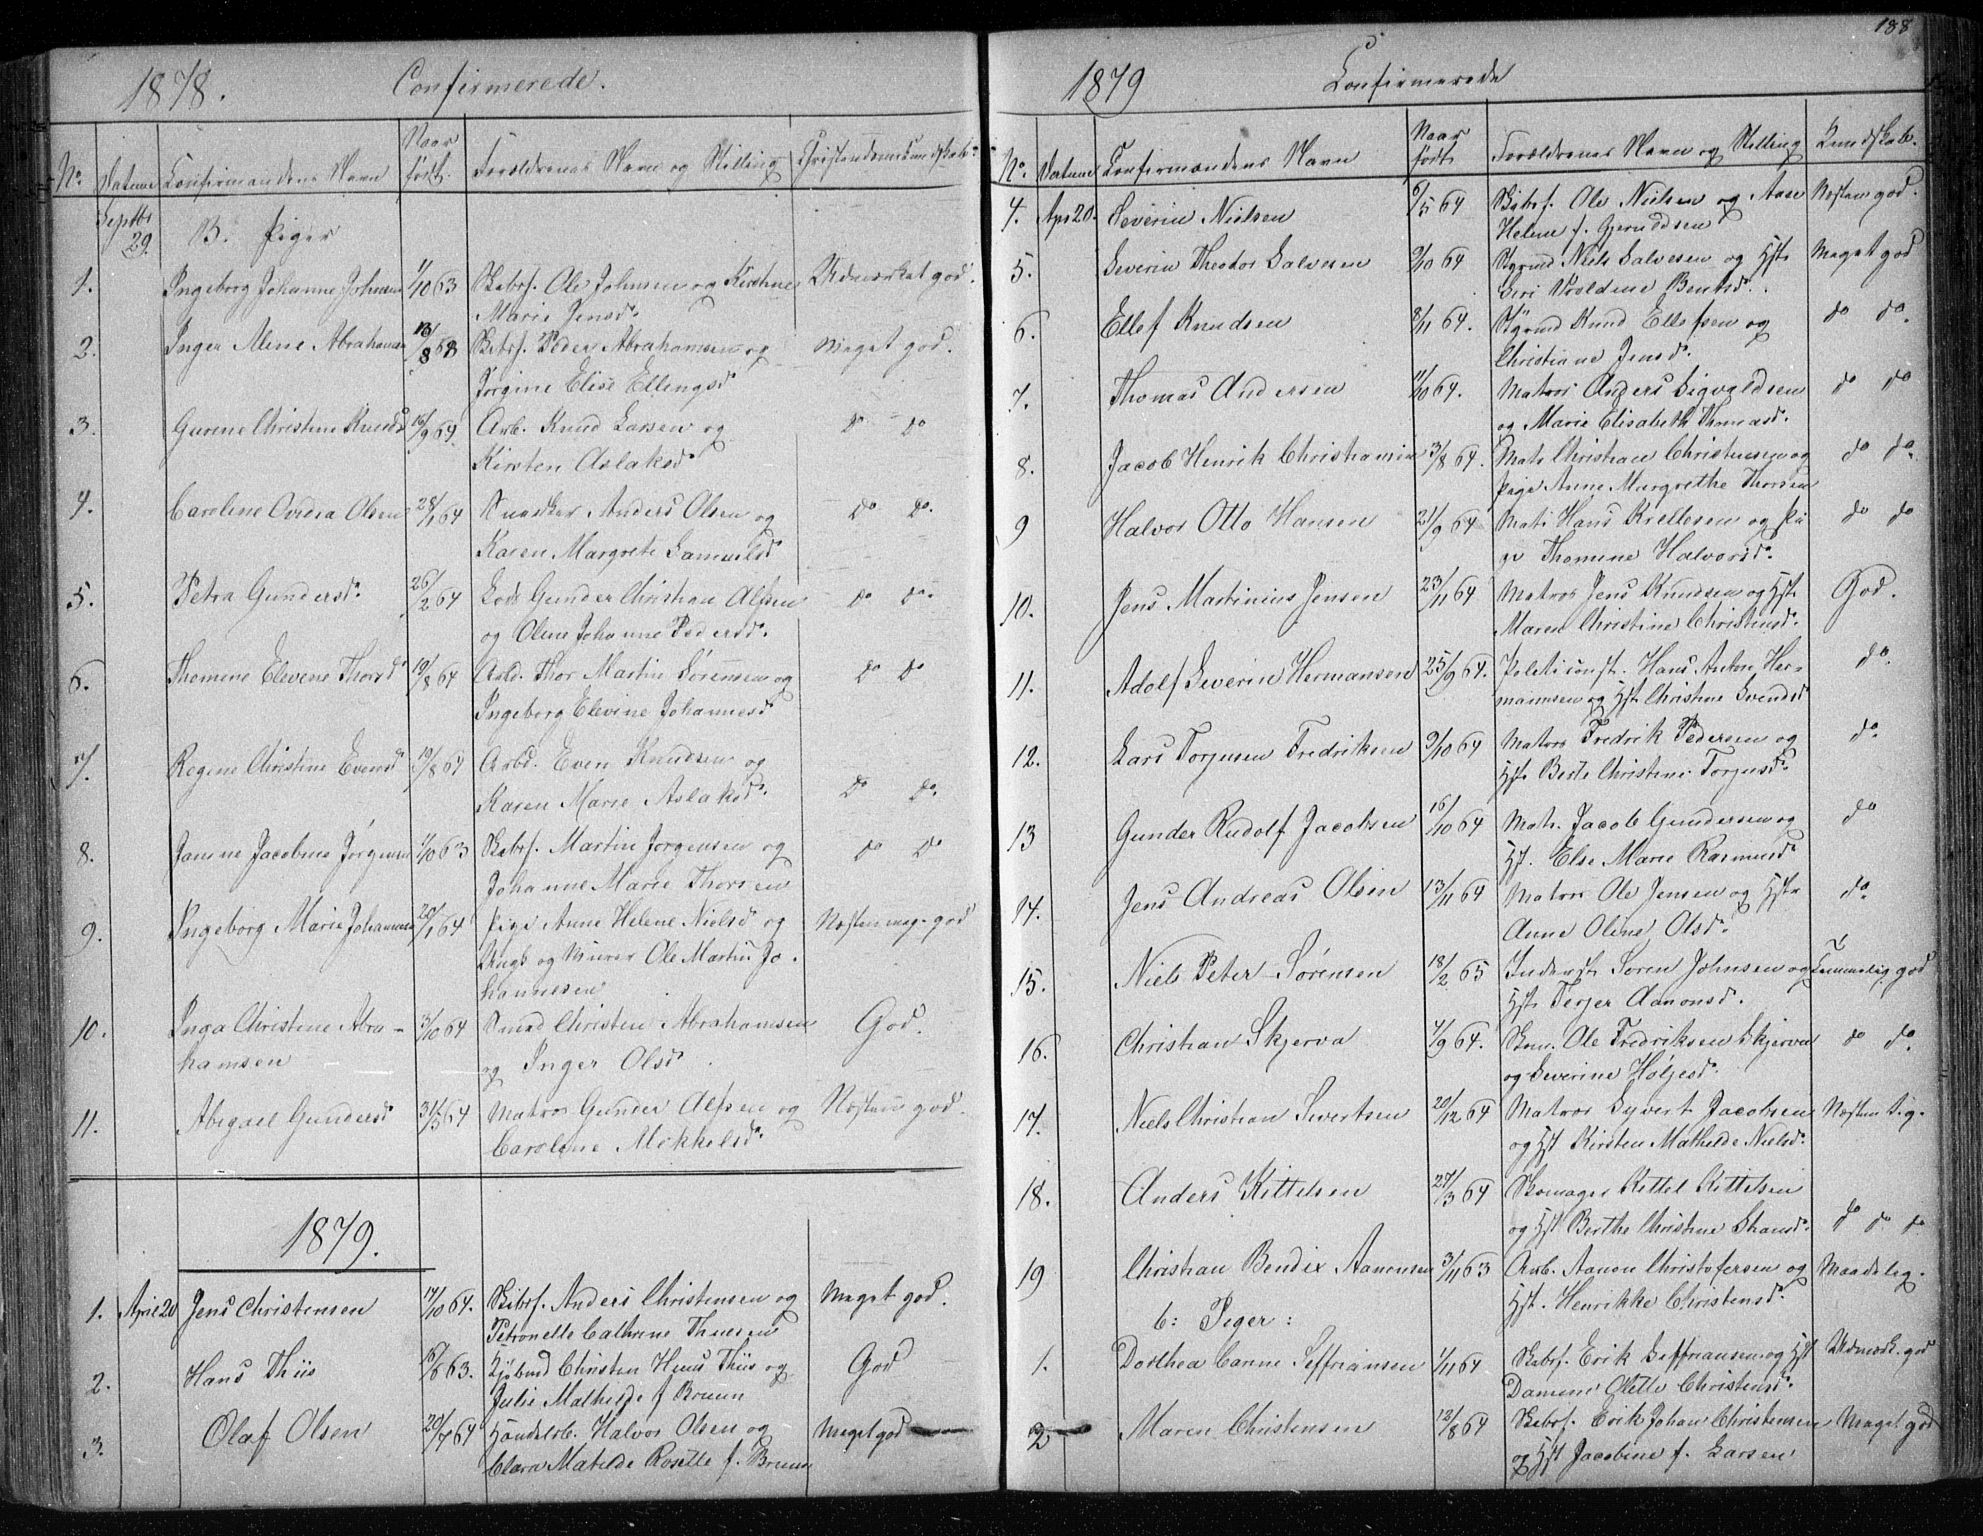 1878. Confirmerede.
No. Datum Confirmandens Navn Naar født. Forældrenes Navn og Stilling Christendomskundskab.
Septbr 29. B. Piger
1. Ingeborg Johanne Johnsen 1/10 63 Skibsf. Ole Johnsen og Kirstine Udmærket god.
Marie Jensd.
2. Inger Alene Abrahamsen 13/8 63 Skibsf. Peder Abrahamsen og Meget god.
Jørgine Elise Ellingsd
3. Gurine Christine Knudsd 16/9 64. Arb. Knud Larsen og do do
Kirsten Aslaksd
4. Caroline Ovidia Olsen 28/1 64 Snedker Anders Olsen og do do.
Karen Margrete Samuelsd
5. Petra Gundersd. 26/2 64 Lods Gunder Christian Alfsen do do.
og Oline Johanne Pedersd.
6. Thomine Elevine Thorsd 19/8 64 Arbd. Thor Martin Sørensen og do do
Ingeborg Elevine Johannesd
7. Regine Christine Evensd 19/8 64 Arbd. Even Knudsen og
Karen Marie Aslaksd. do do.
8. Janine Jacobine Jørgensen 1/10 63 Skibsf. Martin Jørgensen og do do
Johanne Marie Thorsen
9. Ingeborg Marie Johannesen 20/1 64 Pige Anne Helene Nielsd og Næsten meg. god
Ungk og Murer Ole Martin Jo-
hannesen
10. Inga Christine Abra- 3/10 64 Smed Christen Abrahamsen God.
hamsen og Inger Olsd
11. Abigael Gundersd 31/5 64 Matros Gunder Alfsen og Næsten god.
Caroline Mekkelsd.
1879.
1. April 20 Jens Christensen 14/10 64. Skibsf. Anders Christensen og Meget god.
Petronelle Cathrine Thuesen
2. Hans Thiis 6/6 63. Kjøbmd Christen Huus Thiis og God
Julie Mathilde f Bruun
3. Olaf Olsen 20/7 64 Handelsb. Halvor Olsen og Meget god
Clara Matilde Rosette f. Bruun
188
1879 Confirmerede
No. Datum Confirmandens Navn Naar født Forældrenes Navn og Stilling Kundskab.
4. Apr 20. Severin Nielsen 6/5 64 Skibsf. Ole Nielsen og Aase Næsten god.
Helene f. Gjeruldsen
5. Severin Theodor Salvesen 9/10 64 Styrmd Niels Salvesen og Hst Meget god
Siri Voldine Bentsd.
6. Ellef Knudsen 8/11 64. Styrmd Knud Ellefsen og do do.
Christiane Jensd.
7. Thomas Andersen 11/10 64. Matros Anders Sigvaldsen do do
og Marie Elisabeth Thomasd.
8. Jacob Henrik Christiansen 3/8 64. Matr Christian Christensen og do do.
Pige Anne Margrethe Thorsen
9 Halvor Otto Hansen 21/9 64 Matr Hans Krellesen og Pi do do
ge Thomine Halvorsd.
10. Jens Martinius Jensen 23/11 64 Matros Jens Knudsen og Hst God.
Maren Christine Christensd.
11. Adolf Severin Hermansen 25/9 64. Politiconst. Hans Anton Her- do.
mannsen og Hst Christine Svendsd
12. Lars Torjusen Fredriksen 9/10 64 Matros Fredrik Pedersen og do.
Hst Berte Christine Torjusd.
13 Gunder Rudolf Jacobsen 16/10 64 Matr. Jacob Gundersen og do
Hst. Else Marie Rasmusd.
14. Jens Andreas Olsen 13/11 64 Matros Ole Jensen og Hst do.
Anne Oline Olsd.
15. Niels Peter Sørensen 18/2 65 Inderst Søren Johnsen og Temmelig god
Hst Terjer Aanonsd.
16. Christian Skjerva 4/9 64. Ole Fredriksen Skjerva do do.
og Severine Høljesd.
17. Niels Christian Sivertsen 20/12 64 Matros Syvert Jacobsen Næsten tig.
og Hst Kirsten Mathilde Nielsd.
18. Anders Kittelsen 27/3 64 Skomager Kittel Kittelsen
og Hst Berthe Christine do do do
19 Christian Bendix Aanonsen 3/11 63 Arb. Aanon Christofersen og Maadelig.
Hst. Henrikke Christensd.
b: Piger:
1. Dorthea Canne Seffriansen 1/11 64 Skibsf. Erik Seffriansen og Hst Udmærk. god
Damine Gitte Christensd.
2 Maren Christensen 12/8 64 Skibsf. Erik Johan Christensen Meget god
og Hst Jacobine f. Larsen